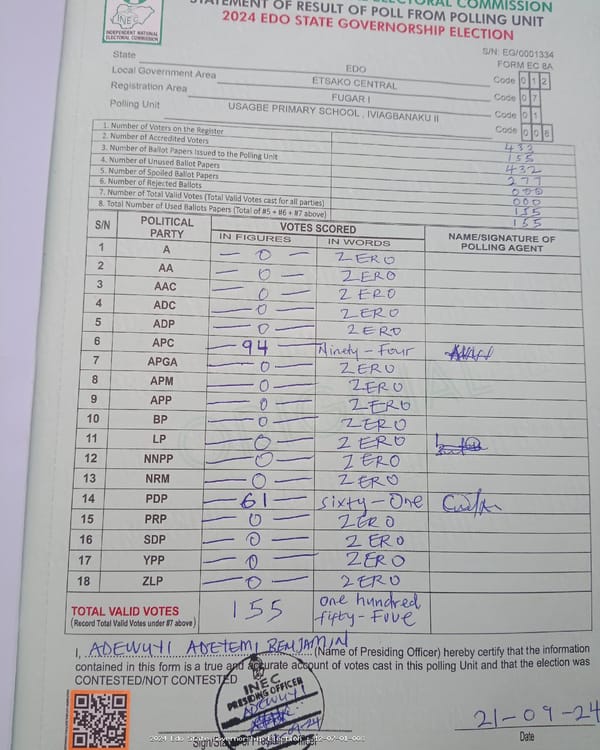 INEC
INDEPENDENT NATIONAL
ELECTORAL COMMISSION
ELECTORAL COMMISSION
STATEMENT OF RESULT OF POLL FROM POLLING UNIT
2024 EDO STATE GOVERNORSHIP ELECTION
S/N: EG/0001334
FORM EC 8A
State EDO Code 0 1 2
Local Government Area ETSAKO CENTRAL Code 0 7
Registration Area FUGAR I Code 0 1
Polling Unit USAGBE PRIMARY SCHOOL , IVIAGBANAKU II Code 0 0 8
1. Number of Voters on the Register 432
2. Number of Accredited Voters 155
3. Number of Ballot Papers Issued to the Polling Unit 432
4. Number of Unused Ballot Papers 277
5. Number of Spoiled Ballot Papers 000
6. Number of Rejected Ballots 000
7. Number of Total Valid Votes (Total Valid Votes cast for all parties) 155
8. Total Number of Used Ballots Papers (Total of #5 + #6 + #7 above) 155
S/N POLITICAL PARTY VOTES SCORED NAME/SIGNATURE OF POLLING AGENT
IN FIGURES IN WORDS
1 A 0 ZERO
2 AA 0 ZERO
3 AAC 0 ZERO
4 ADC 0 ZERO
5 ADP 0 ZERO
6 APC 94 Ninety-Four
7 APGA 0 ZERO
8 APM 0 ZERO
9 APP 0 ZERO
10 BP 0 ZERO
11 LP 0 ZERO
12 NNPP 0 ZERO
13 NRM 0 ZERO
14 PDP 61 sixty-One
15 PRP 0 ZERO
16 SDP 0 ZERO
17 YPP 0 ZERO
18 ZLP 0 ZERO
TOTAL VALID VOTES 155 one hundred
(Record Total Valid Votes under #7 above) fifty-Five
I, ADEWUYI ADEYEMI BENJAMIN (Name of Presiding Officer) hereby certify that the information
contained in this form is a true and accurate account of votes cast in this polling Unit and that the election was
CONTESTED/NOT CONTESTED
INEC
PRESIDING OFFICER
ADEWUYI
21-09-24
Date